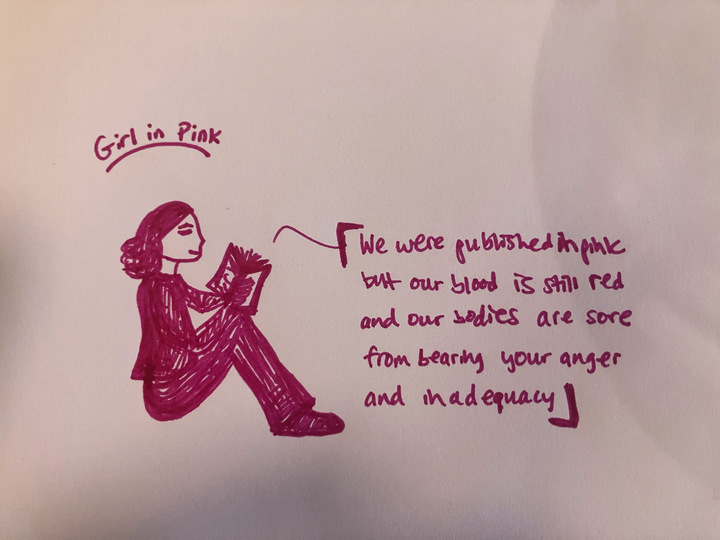 Girl in Pink
We were published in pink
but our blood is still red
and our bodies are sore
from bearing your anger
and inadequacy